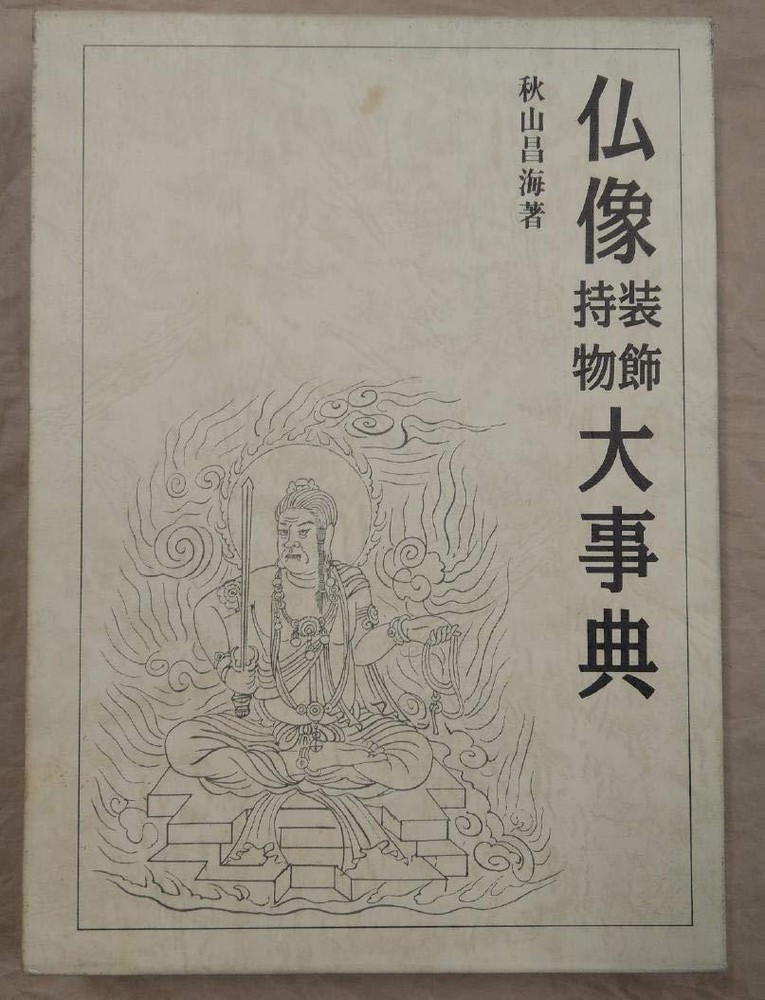 仏像装飾持物大事典
秋山昌海著